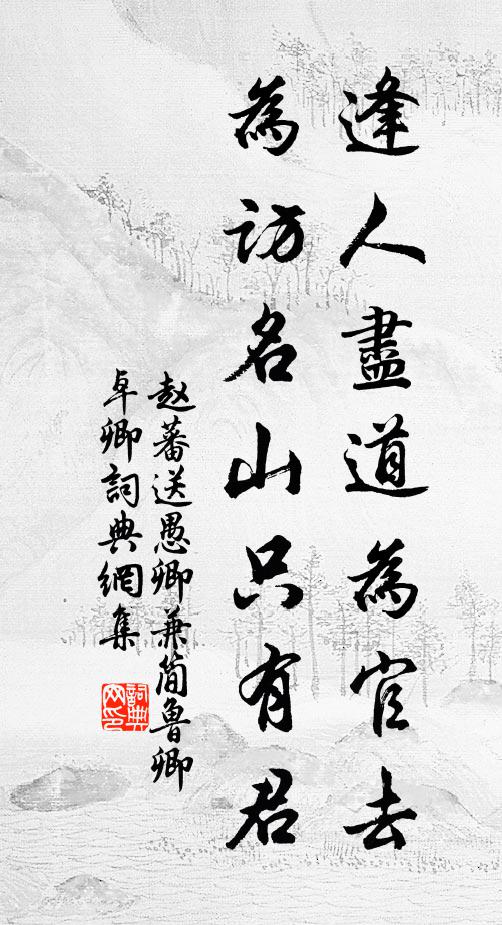 逢人盡道為官去
為訪名山只有君
赵蕃送愚卿兼简鲁卿
卓卿詞典網集
詞典
网印